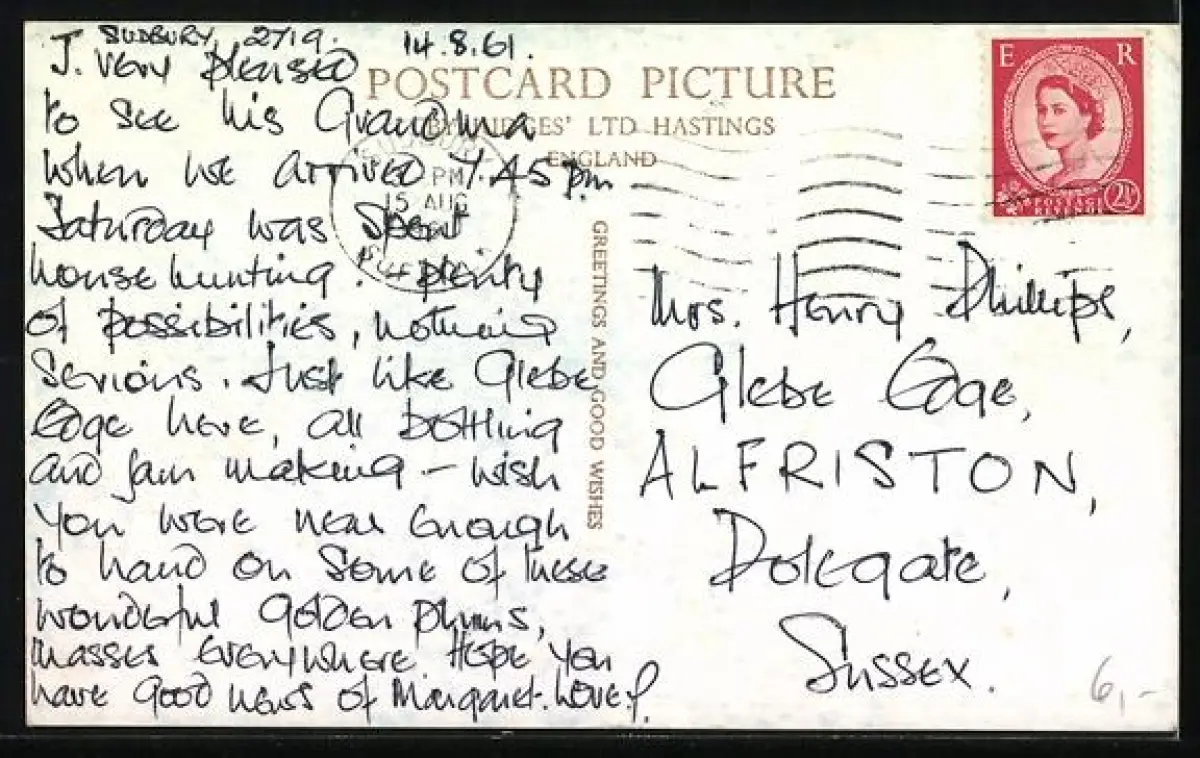 SUDBURY, 2719. 14.8.61.
J. very pleased
to see his Grandma
when we arrived 7.45 pm
Saturday was spent
house hunting. plenty
of possibilities, nothing
serious. Just like Glebe
Edge here, all bottling
and jam making - wish
you were near enough
to hand on some of these
wonderful golden plums,
masses everywhere. Hope you
have good news of Margaret. Love
POSTCARD PICTURE
BY JUDGES' LTD HASTINGS
ENGLAND
GREETINGS AND GOOD WISHES
PM
15 AUG
E R
POSTAGE
REVENUE
2½
Mrs. Henry Phillips,
Glebe Edge,
ALFRISTON,
Polegate,
Sussex.
6,-